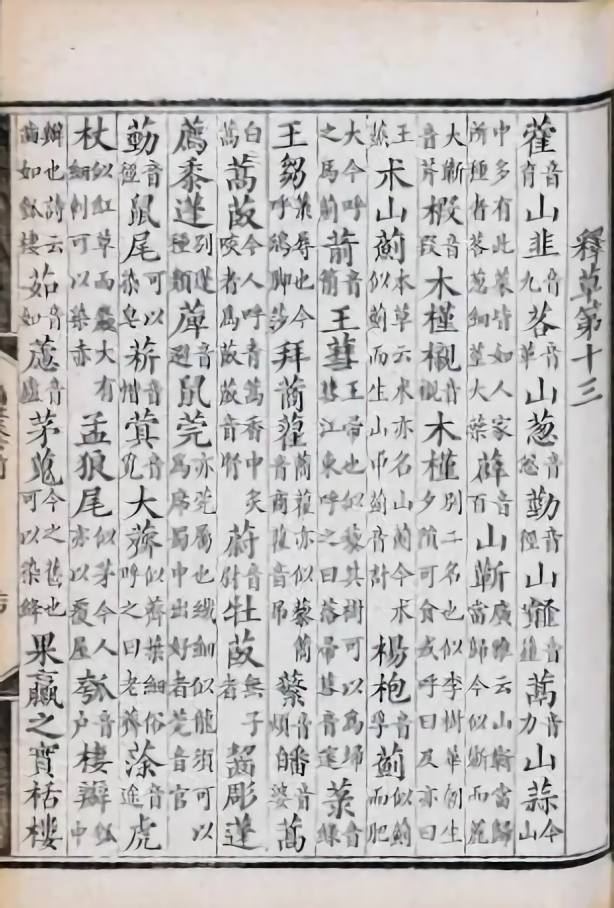 釋草第十三
蒮音育山韭音九茖音革山葱音怱勤音徑山䪥蒚音力山蒜今山
中多有此菜皆如人家所種者茖葱細莖大葉薜音百山蘄廣雅云山蘄當歸當歸今似蘄而麄
大蘄音芹椴音段木槿櫬音襯木槿别二名也似李樹華朝生夕隕可食或呼曰及亦曰
王蒸朮山薊本草云朮亦名山薊今朮似薊而生山中薊音計楊枹音孚薊似薊而肥
大今呼之馬薊葥音箭王蔧王帚也似藜其樹可以為埽蔧江東呼之曰落帚蔧音遂菉音緑
王芻菉蓐也今呼鴟脚莎拜蔏藋蔏藋亦似藜蔏音商藋音吊蘩音煩皤音婆蒿
白蒿蒿菣今人呼青蒿香中炙啖者為菣菣音蔚音尉牡菣無子者齧彫蓬
薦黍蓬别蓬種類𦿆音避鼠莞亦莞屬也纖細似龍須可以為席蜀中出好者莞音官
勤音徑鼠尾可以染皂菥音惜蓂音覓大薺似薺葉細俗呼之曰老薺蒤音途虎
杖似紅草而麤大有細刺可以染赤孟狼尾似茅今人亦以覆屋瓠音户棲瓣瓠中
瓣也詩云齒如瓠棲茹音如藘音廬茅蒐今之蒨也可以染絳果臝之實栝樓